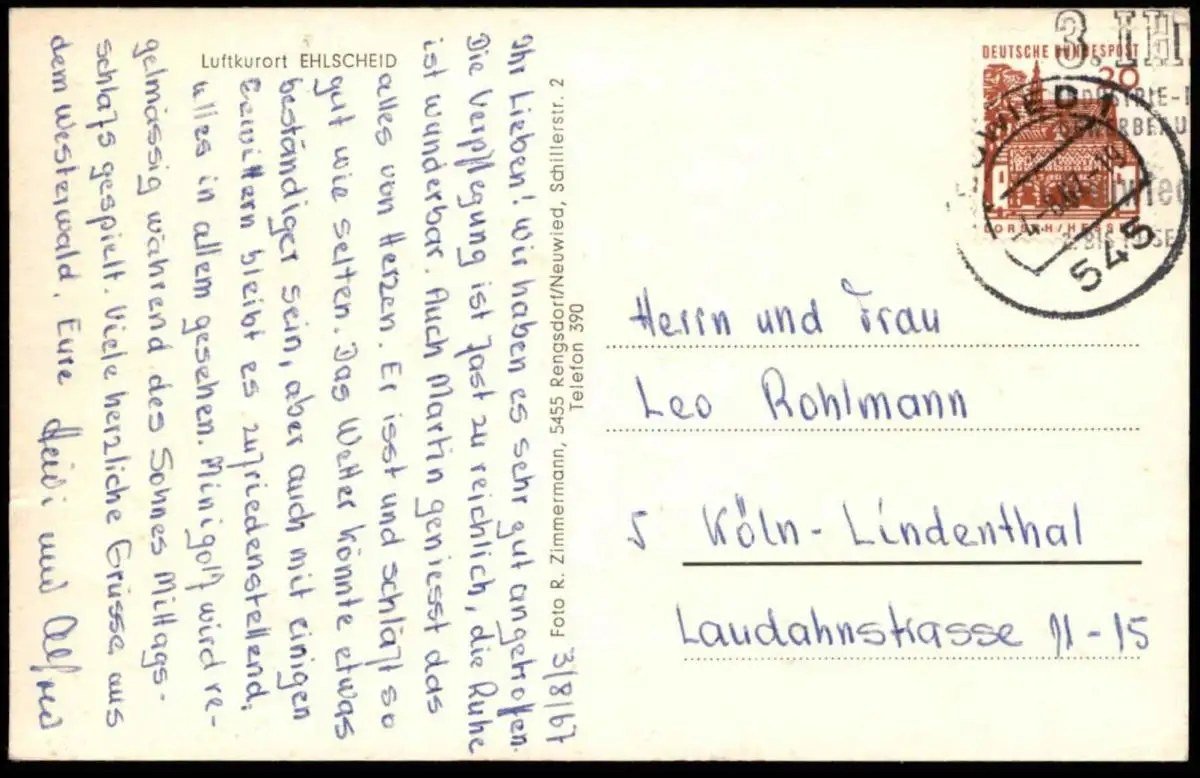 Luftkurort EHLSCHEID
3/8/67
Ihr Lieben! Wir haben es sehr gut angetroffen.
Die Verpflegung ist fast zu reichlich, die Ruhe
ist wunderbar. Auch Martin geniesst das
alles von Herzen. Er isst und schläft so
gut wie selten. Das Wetter könnte etwas
beständiger sein, aber auch mit einigen
Gewittern bleibt es zufriedenstellend,
alles in allem gesehen. Minigolf wird re-
gelmässig während des Sohnes Mittags-
schlafs gespielt. Viele herzliche Grüsse aus
dem Westerwald. Eure Heidi und Alfred
Foto R. Zimmermann, 5455 Rengsdorf/Neuwied, Schillerstr. 2
Telefon 390
DEUTSCHE BUNDESPOST
20
LORSCH/HESSEN
545
Herrn und Frau
Leo Rohlmann
5 Köln-Lindenthal
Laudahnstrasse 11-15